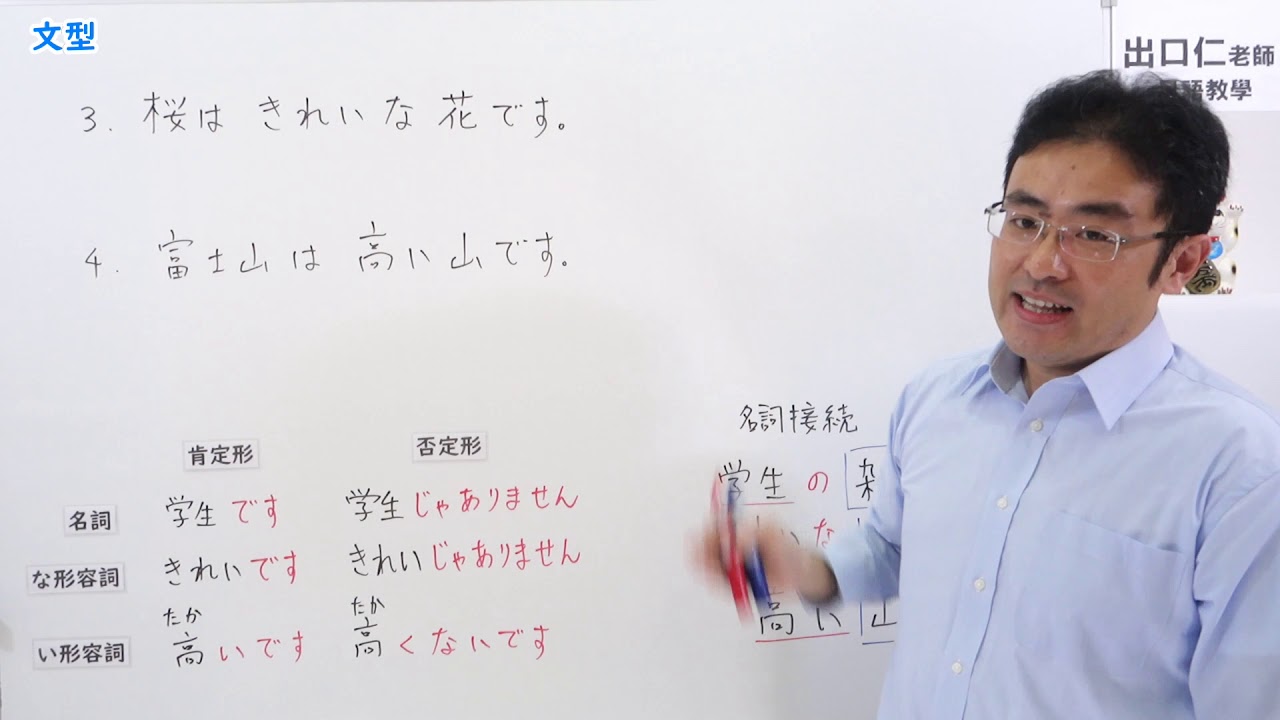 文型
出口仁老師
語教學
3. 桜は きれいな 花です。
4. 富士山は 高い山です。
肯定形 否定形
名詞 学生です 学生じゃありません
な形容詞 きれいです きれいじゃありません
たか たか
い形容詞 高いです 高くないです
名詞接続
学生の 雑
いな
高い 山